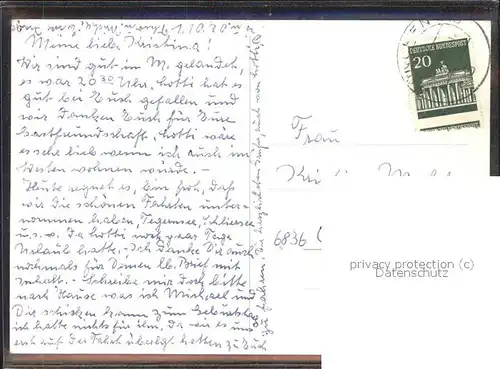 1.10.70
Meine liebe Kristina!
Wir sind gut in M. gelandet,
es war 20 30 Uhr. Lotti hat es
gut bei Euch gefallen und
wir danken Euch für Eure
Gastfreundschaft. Lotti wäre
es sehr lieb wenn ich auch im
Westen wohnen würde. –
Heute regnet es, bin froh, daß
wir die schönen Fahrten unter-
nommen haben, Tegernsee, Schliersee
u.s.w. Da Lotti noch paar Tage
Urlaub hatte. – Ich danke Dir auch
nochmals für Deinen lb. Brief mit
Inhalt. – Schreibe mir doch bitte
nach Hause was ich Michael und
Dir schicken kann zum Geburtstag
ich hatte nichts für ihn. Da wir es uns
erst auf der Fahrt überlegt hatten zu Euch
zu fahren. Die herzlichsten Grüße, auch von Lotti
DEUTSCHE BUNDESPOST
20
Frau
6836
privacy protection (c)
Datenschutz